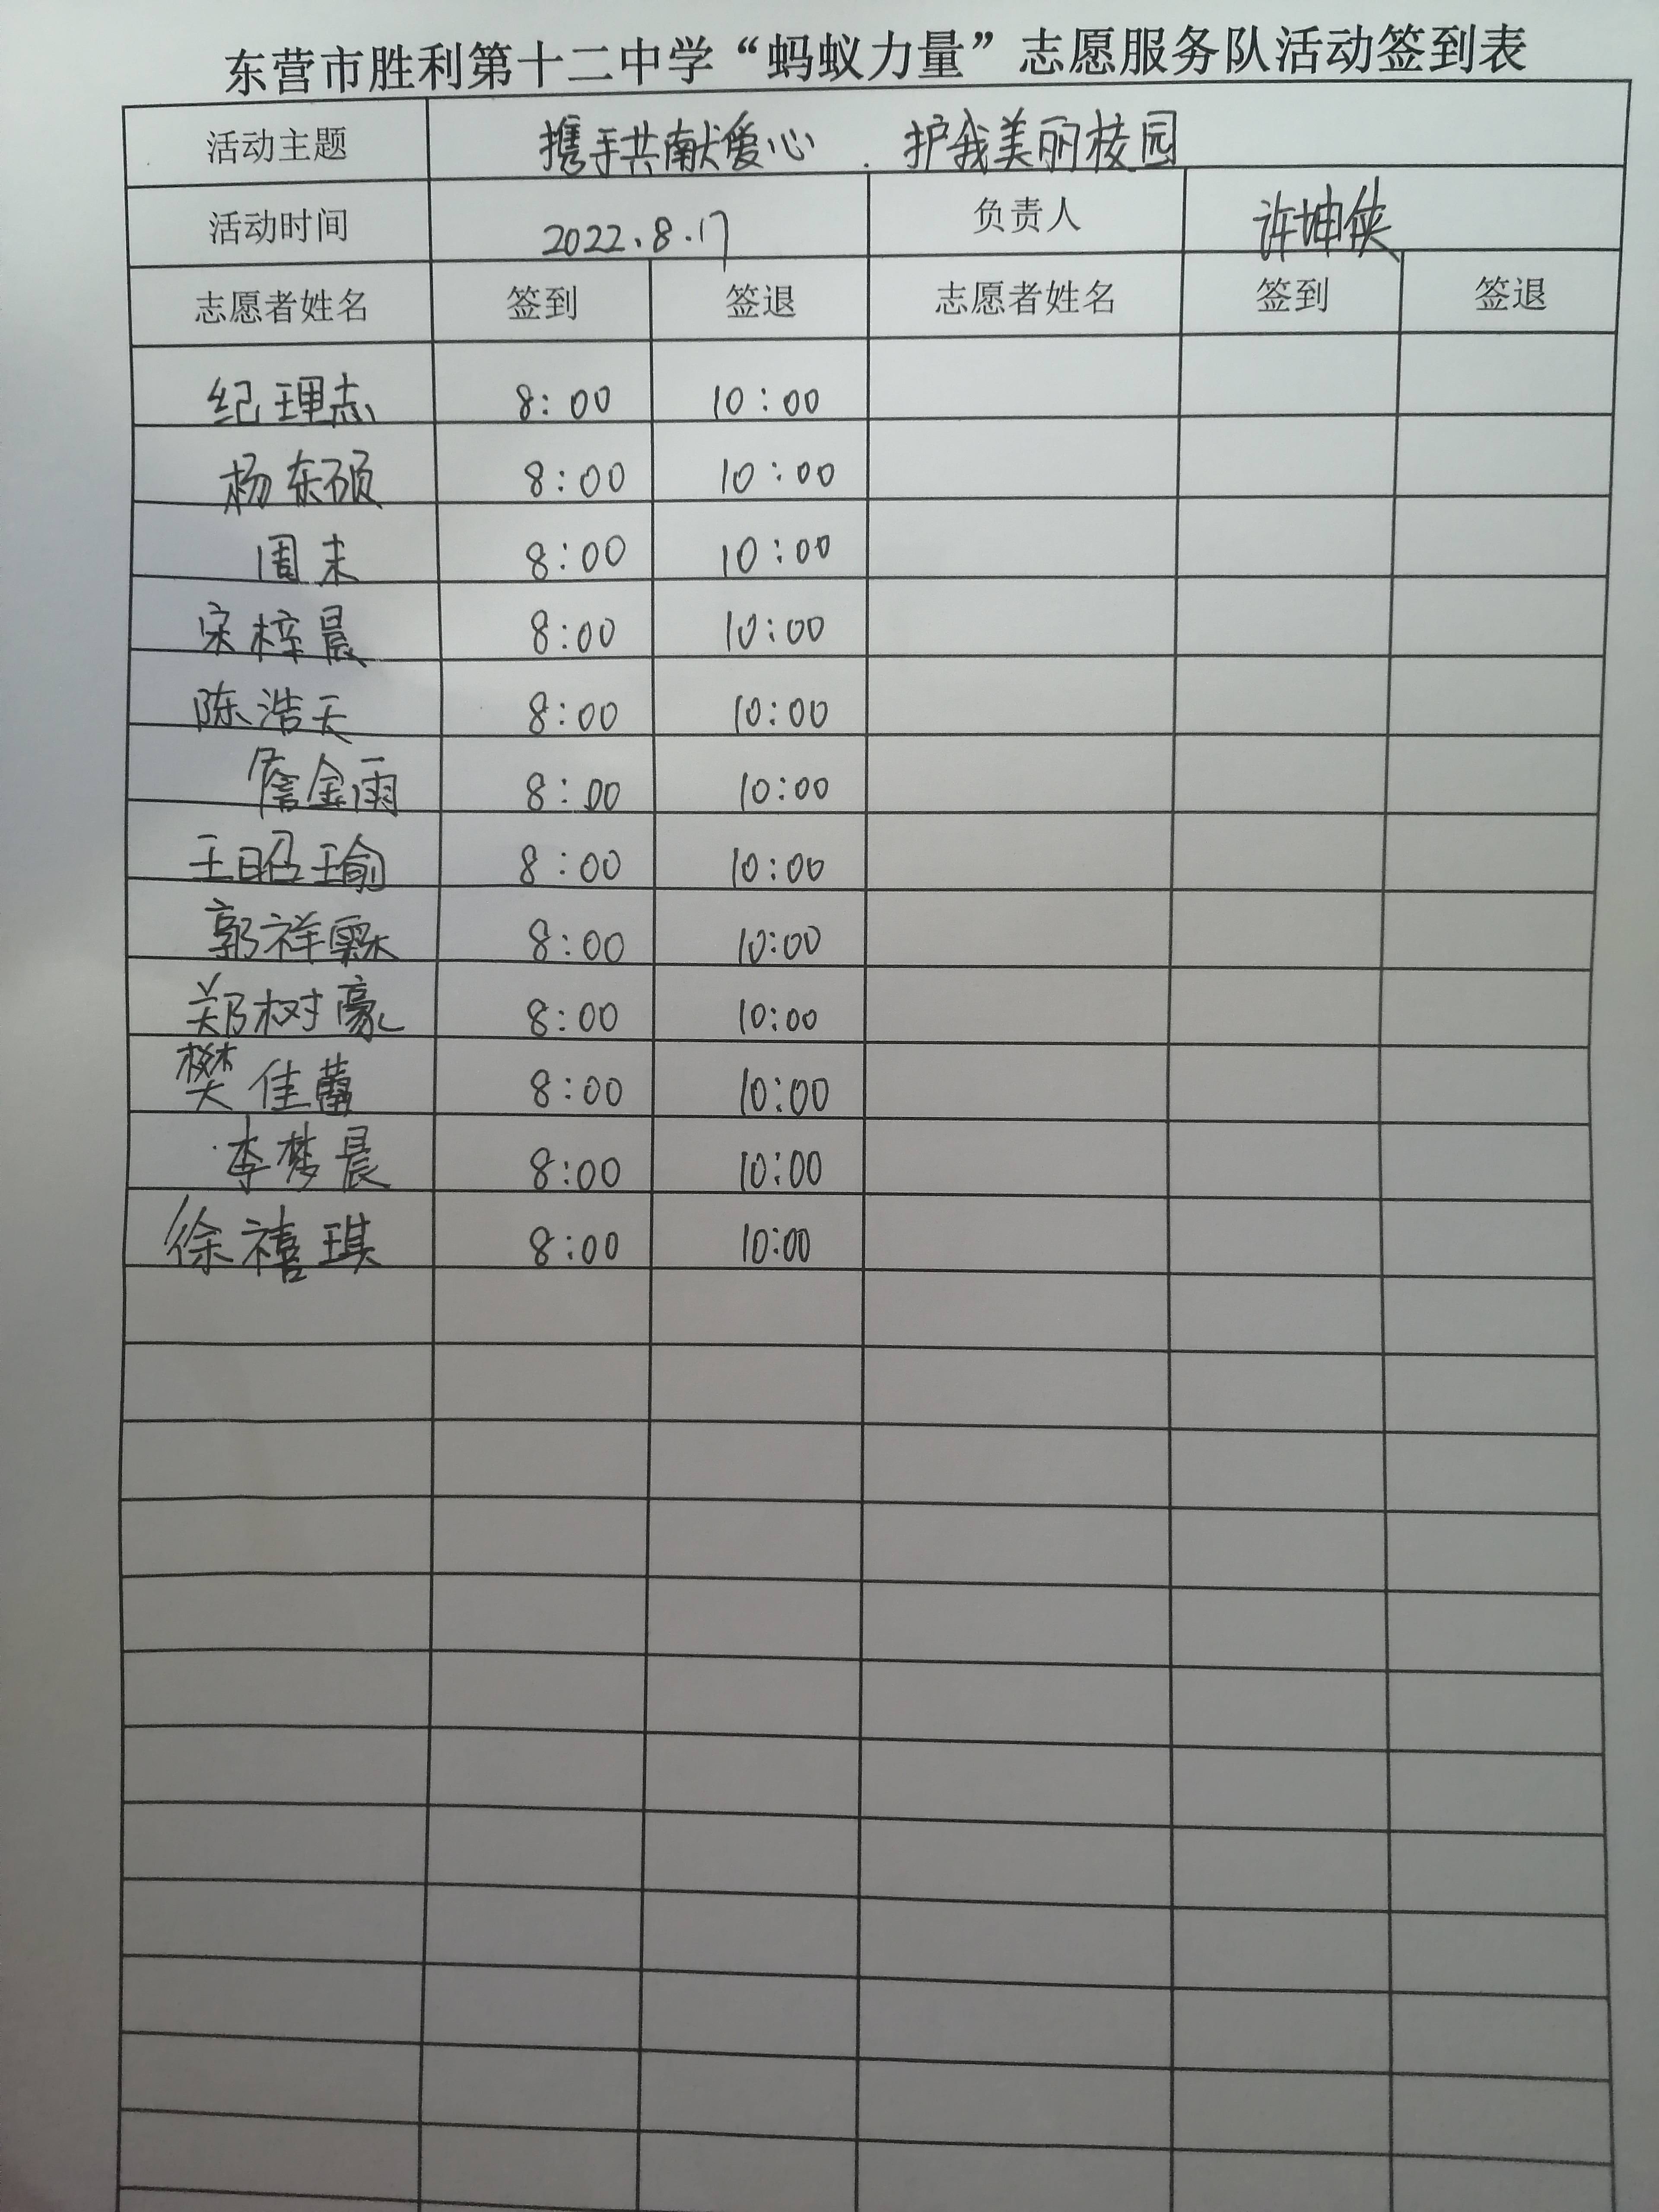 东营市胜利第十二中学“蚂蚁力量”志愿服务队活动签到表
活动主题 携手共献爱心 . 护我美丽校园
活动时间 2022.8.17 负责人 许坤侠
志愿者姓名 签到 签退 志愿者姓名 签到 签退
纪理志 8:00 10:00
杨东硕 8:00 10:00
周末 8:00 10:00
宋梓晨 8:00 10:00
陈浩天 8:00 10:00
詹金雨 8:00 10:00
王昭瑜 8:00 10:00
郭祥霖 8:00 10:00
郑树豪 8:00 10:00
樊佳蕾 8:00 10:00
李梦晨 8:00 10:00
徐禧琪 8:00 10:00